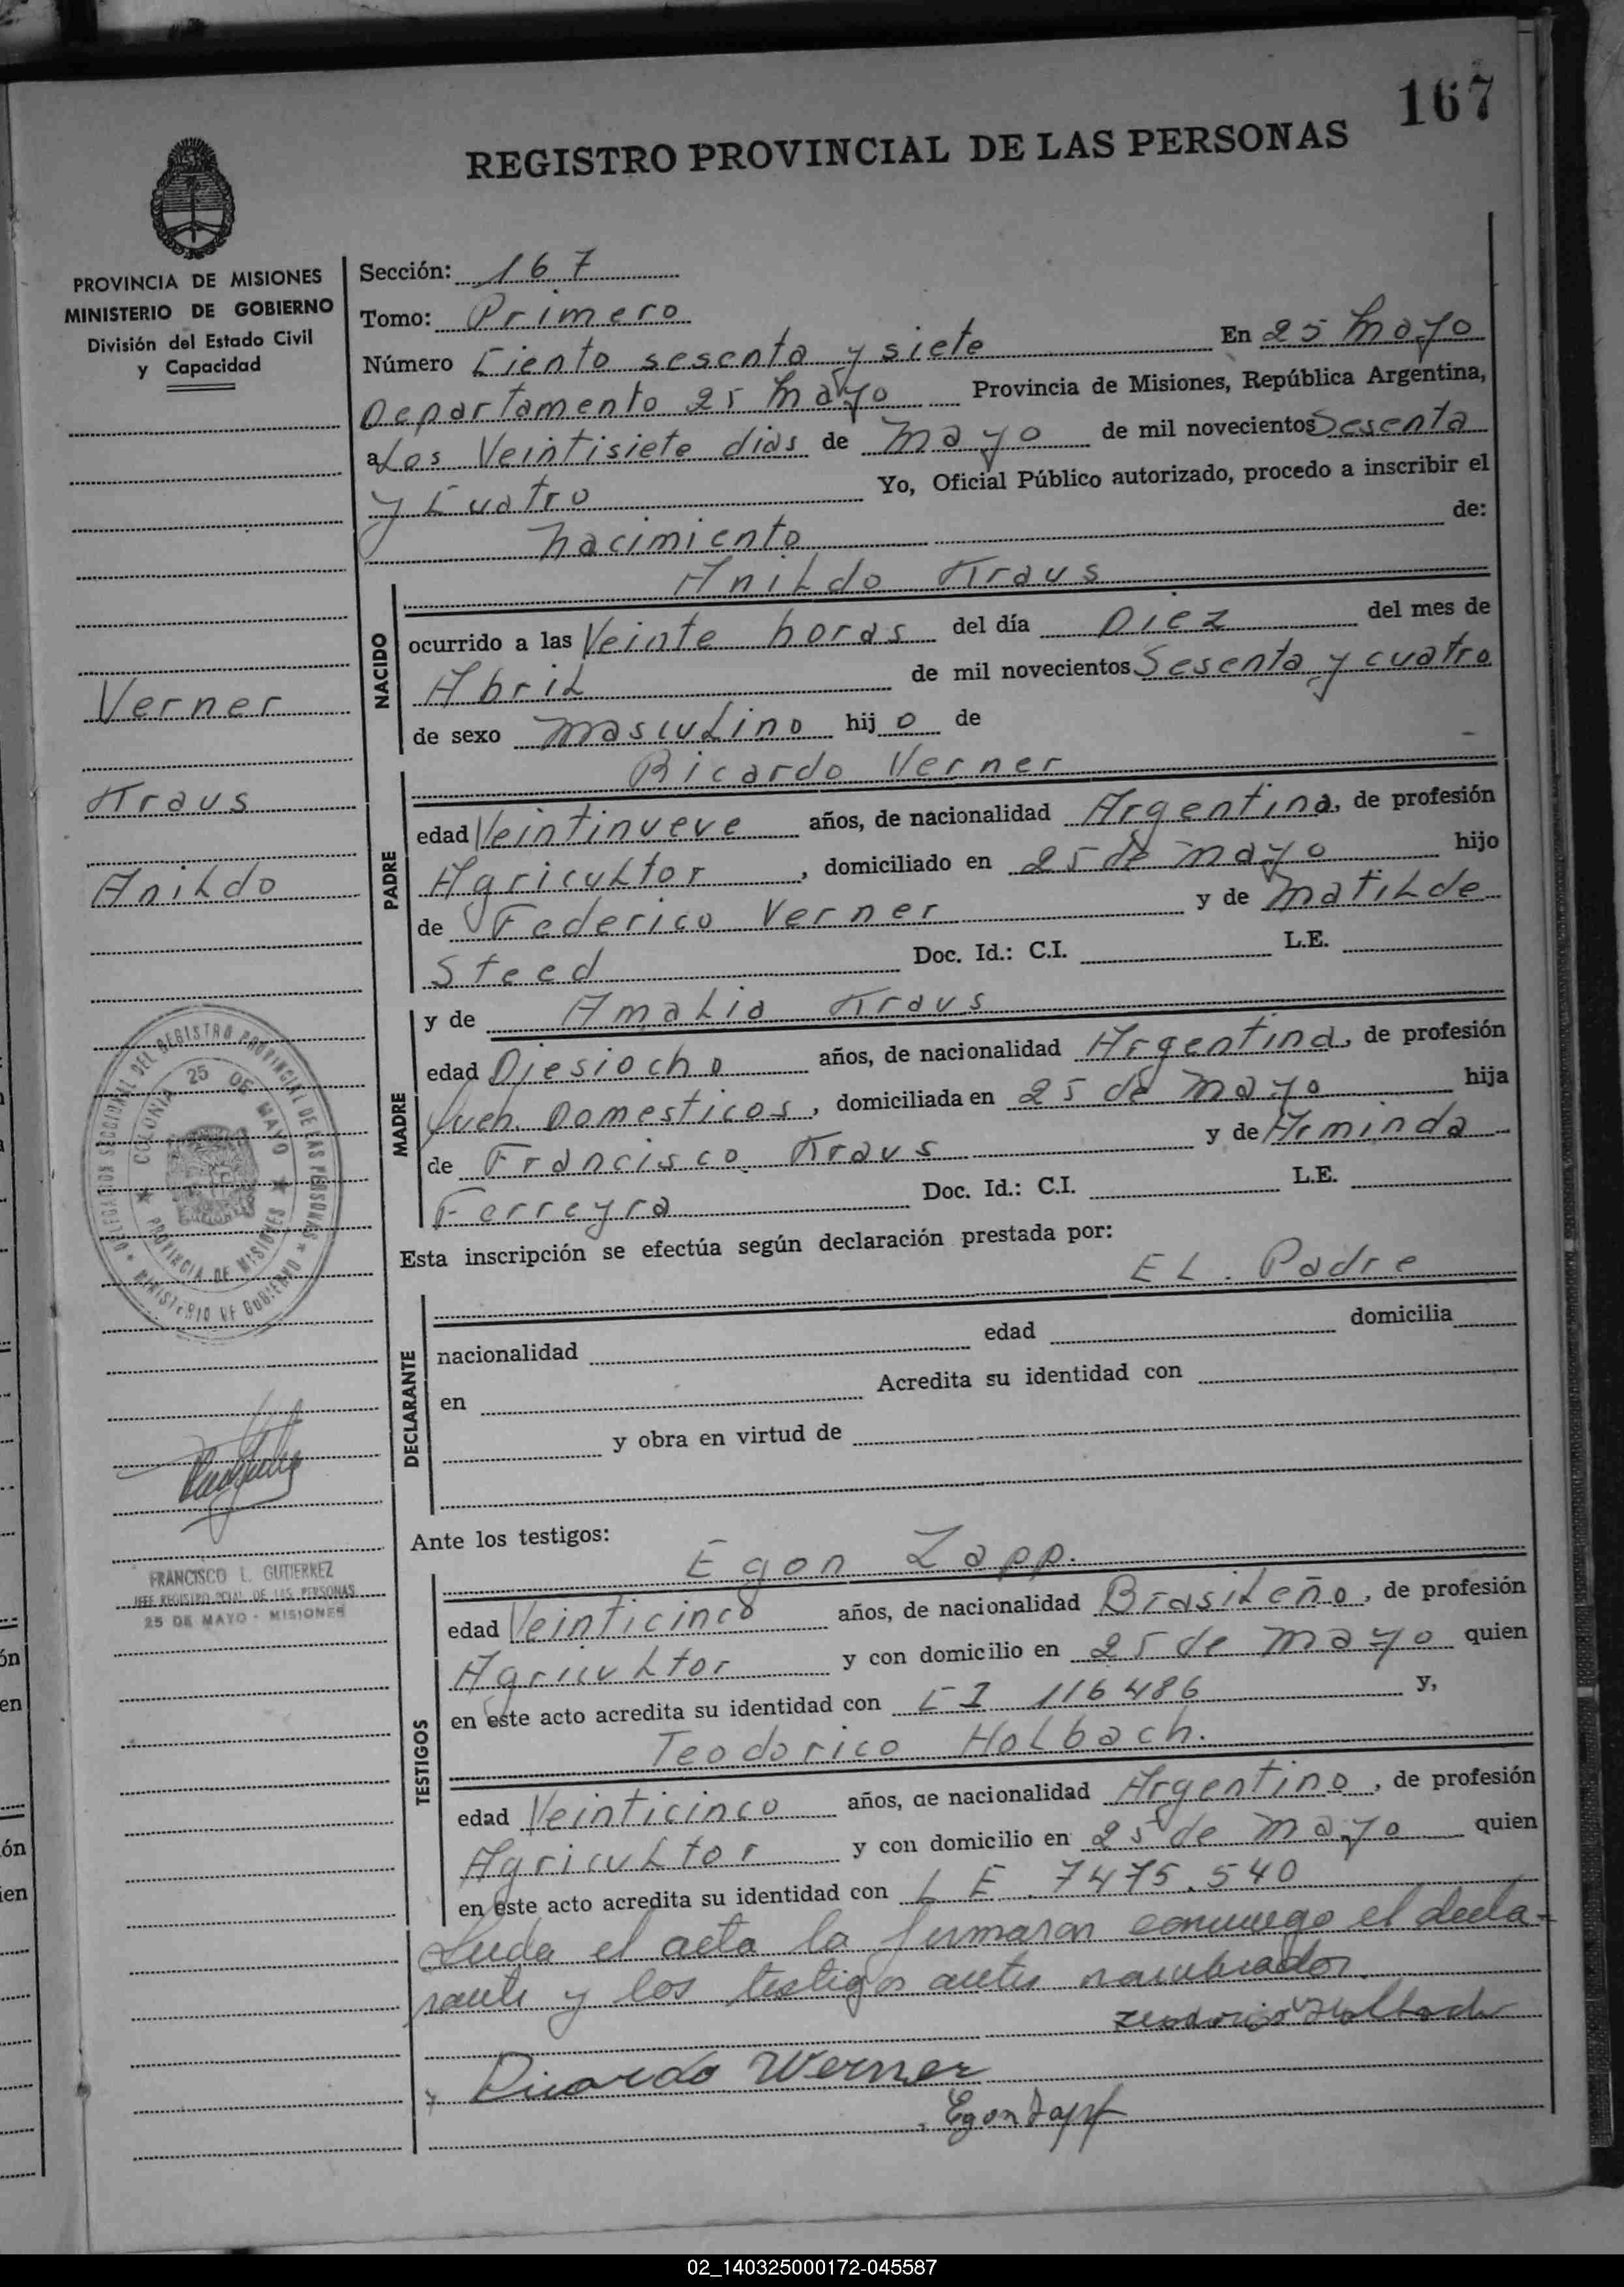 167
REGISTRO PROVINCIAL DE LAS PERSONAS
PROVINCIA DE MISIONES
MINISTERIO DE GOBIERNO
División del Estado Civil
y Capacidad
Verner
Kraus
Anildo
DELEGACION SECCIONAL DEL REGISTRO PROVINCIAL DE LAS PERSONAS
MINISTERIO DE GOBIERNO
COLONIA 25 DE MAYO
PROVINCIA DE MISIONES
FRANCISCO L. GUTIERREZ
JEFE REGISTRO PCIAL. DE LAS PERSONAS
25 DE MAYO - MISIONES
Sección: 167
Tomo: Primero
Número Ciento sesenta y siete En 25 Mayo
Departamento 25 Mayo Provincia de Misiones, República Argentina,
a Los Veintisiete dias de Mayo de mil novecientos Sesenta
y Cuatro Yo, Oficial Público autorizado, procedo a inscribir el
Nacimiento de:
Anildo Kraus
NACIDO
ocurrido a las Veinte horas del día Diez del mes de
Abril de mil novecientos Sesenta y cuatro
de sexo Masculino hijo de
PADRE
Ricardo Verner
edad Veintinueve años, de nacionalidad Argentina, de profesión
Agricultor, domiciliado en 25 de Mayo hijo
de Federico Verner y de Matilde
Steed Doc. Id.: C.I. L.E.
MADRE
y de Amalia Kraus
edad Diesiocho años, de nacionalidad Argentina, de profesión
Queh. Domesticos, domiciliada en 25 de Mayo hija
de Francisco Kraus y de Arminda
Ferreyra Doc. Id.: C.I. L.E.
Esta inscripción se efectúa según declaración prestada por:
EL. Padre
DECLARANTE
nacionalidad edad domicilia
en Acredita su identidad con
y obra en virtud de
Ante los testigos:
TESTIGOS
Egon Zapp.
edad Veinticinco años, de nacionalidad Brasileño, de profesión
Agricultor y con domicilio en 25 de Mayo quien
en este acto acredita su identidad con CI 116486 y,
Teodorico Holbach.
edad Veinticinco años, de nacionalidad Argentino, de profesión
Agricultor y con domicilio en 25 de Mayo quien
en este acto acredita su identidad con L E. 7475.540
Leida el acta la firmaron conmigo el decla-
rante y los testigos antes nombrados.
Ricardo Werner
Egon Zapp
02_140325000172-045587